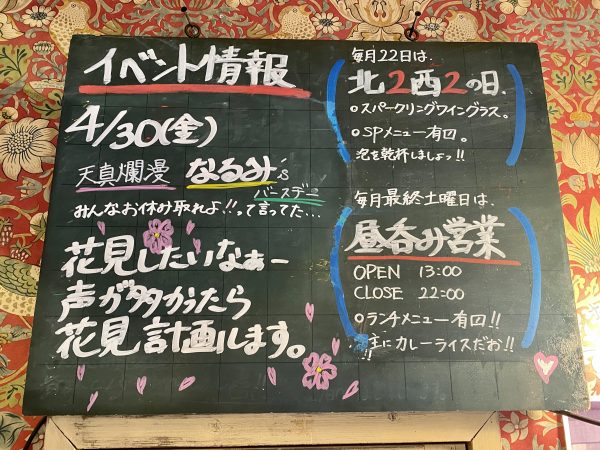 イベント情報
4/30(金)
天真爛漫 なるみ's
バースデー
みんなお休み取れよ!!って言ってた…
花見したいなぁー
声が多かったら
花見計画します。
毎月22日は、
北2西2の日、
○スパークリングワイングラス。
○SPメニュー有(回)。
泡を乾杯しましょっ!!
毎月最終土曜日は、
昼呑み営業
OPEN 13:00
CLOSE 22:00
○ランチメニュー有(回)!!
主にカレーライスだお!!
!!